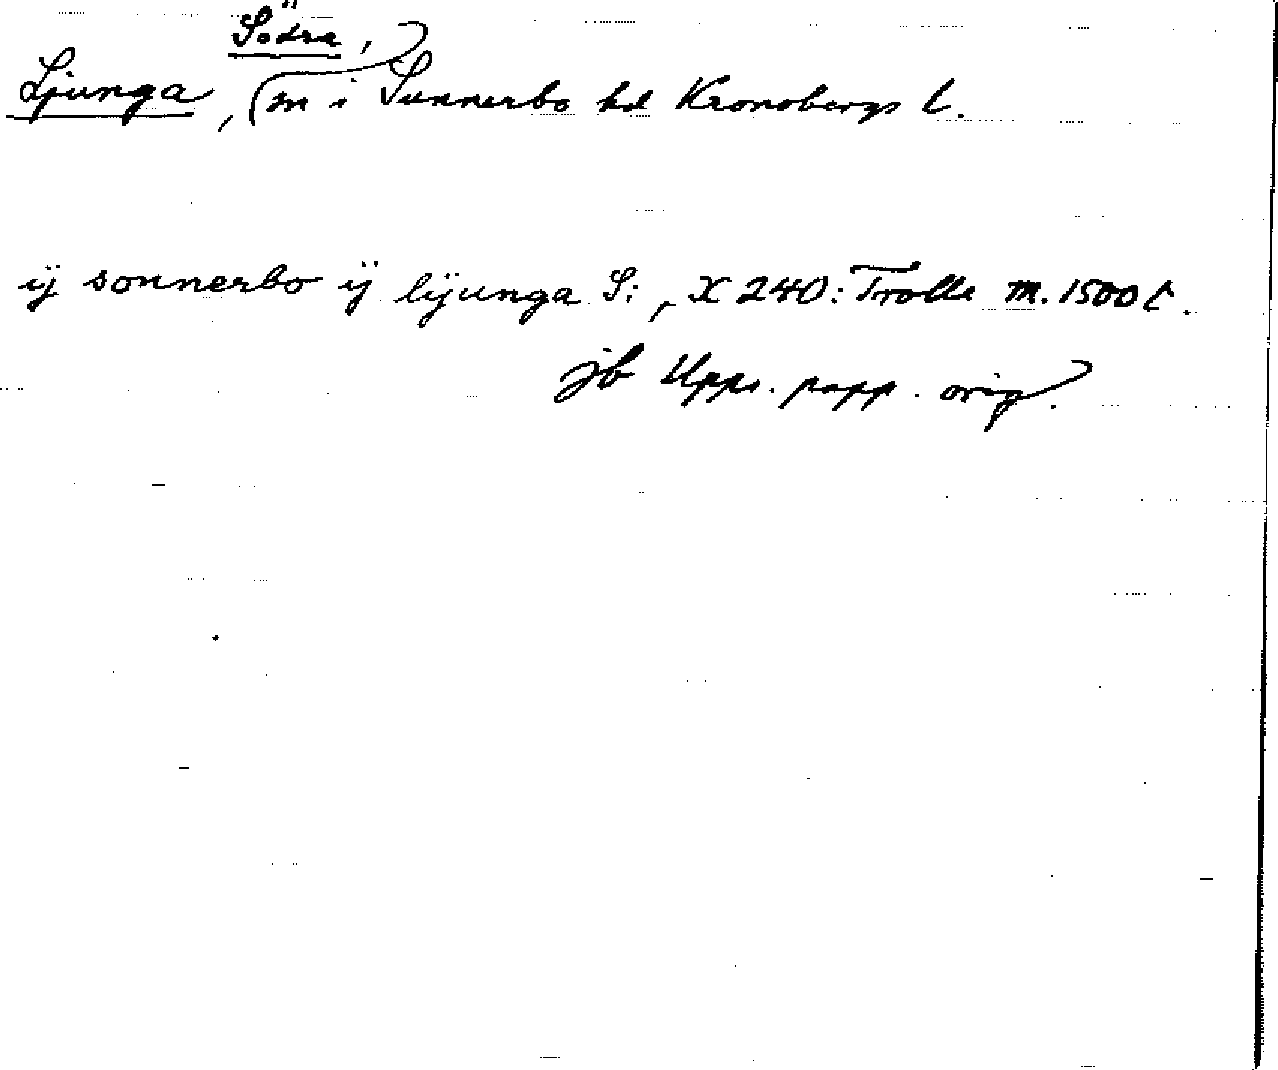 Södra,
Ljunga, m i Sunnerbo hd Kronobergs l.
ÿ sonnerbo ÿ lÿunga S:, X 240: Trolle m. 1500 t.
jb Upps. papp. orig.